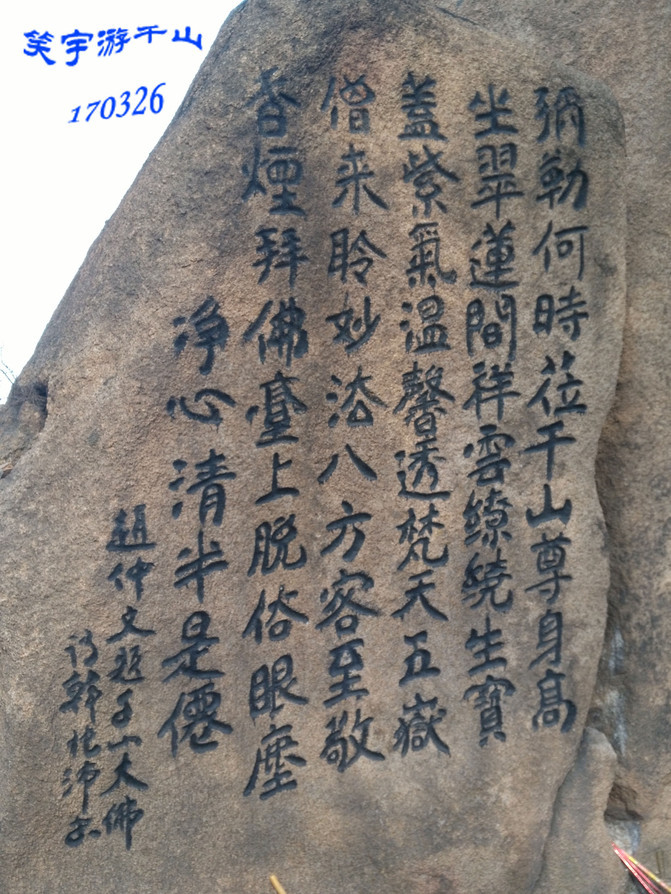 笑宇游千山
170326
彌勒何時莅千山尊身高
坐翠蓮間祥雲繚繞生寶
蓋紫氣溫馨透梵天五嶽
僧来聆妙法八方客至敬
香煙拜佛臺上脱俗眼塵
淨心清半是僊
趙仲文題千山大佛